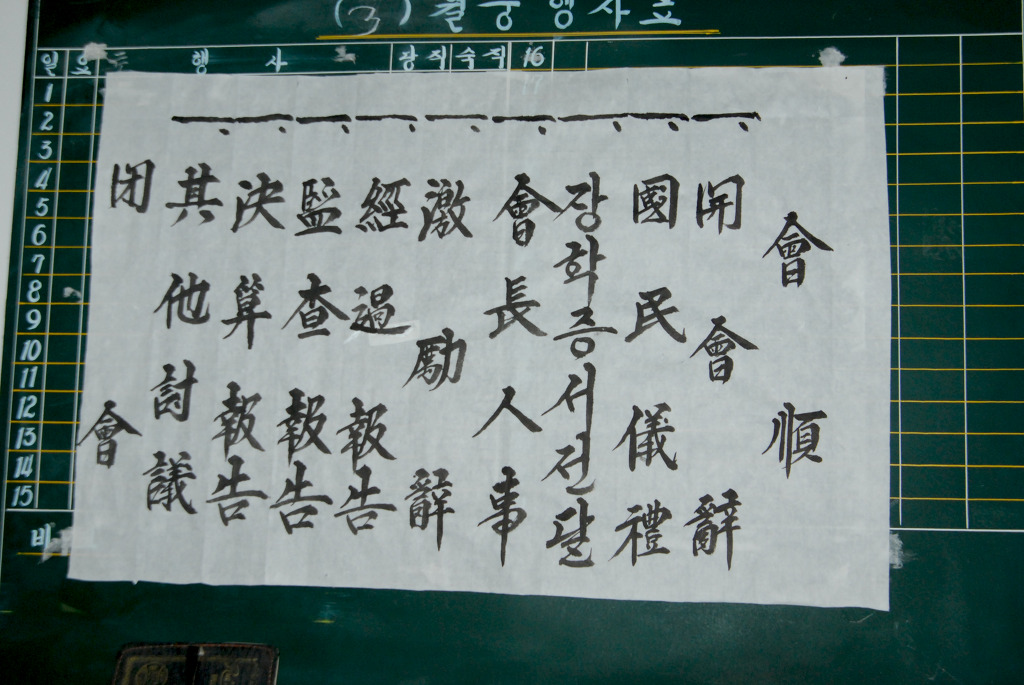 (3) 월중행사표
일 요 행 사 당직 숙직 16
1
2
3
4
5
6
7
8
9
10
11
12
13
14
15
비
會順
一、開會辭
一、國民儀禮
一、장학증서전달
一、會長人事
一、激勵辭
一、經過報告
一、監查報告
一、決算報告
一、其他討議
閉會